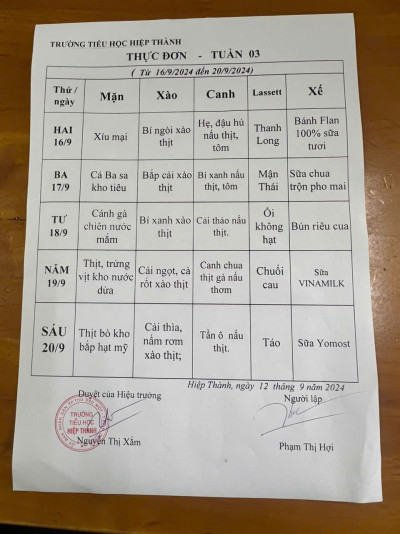 TRƯỜNG TIỂU HỌC HIỆP THÀNH
THỰC ĐƠN - TUẦN 03
( Từ 16/9/2024 đến 20/9/2024)
Thứ / ngày Mặn Xào Canh Lassett Xế
HAI 16/9 Xíu mại Bí ngòi xào thịt Hẹ, đậu hủ nấu thịt, tôm Thanh Long Bánh Flan 100% sữa tươi
BA 17/9 Cá Ba sa kho tiêu Bắp cải xào thịt Bí xanh nấu thịt, tôm Mận Thái Sữa chua trộn pho mai
TƯ 18/9 Cánh gà chiên nước mắm Bí xanh xào thịt Cải thảo nấu thịt. Ổi không hạt Bún riêu cua
NĂM 19/9 Thịt, trứng vịt kho nước dừa Cải ngọt, cà rốt xào thịt Canh chua thịt gà nấu thơm Chuối cau Sữa VINAMILK
SÁU 20/9 Thịt bò kho bắp hạt mỹ Cải thìa, nấm rơm xào thịt; Tần ô nấu thịt. Táo Sữa Yomost
Hiệp Thành, ngày 12 tháng 9 năm 2024
Duyệt của Hiệu trưởng Người lập
TRƯỜNG
TIỂU HỌC
HIỆP THÀNH
Nguyễn Thị Xắm Phạm Thị Hợi